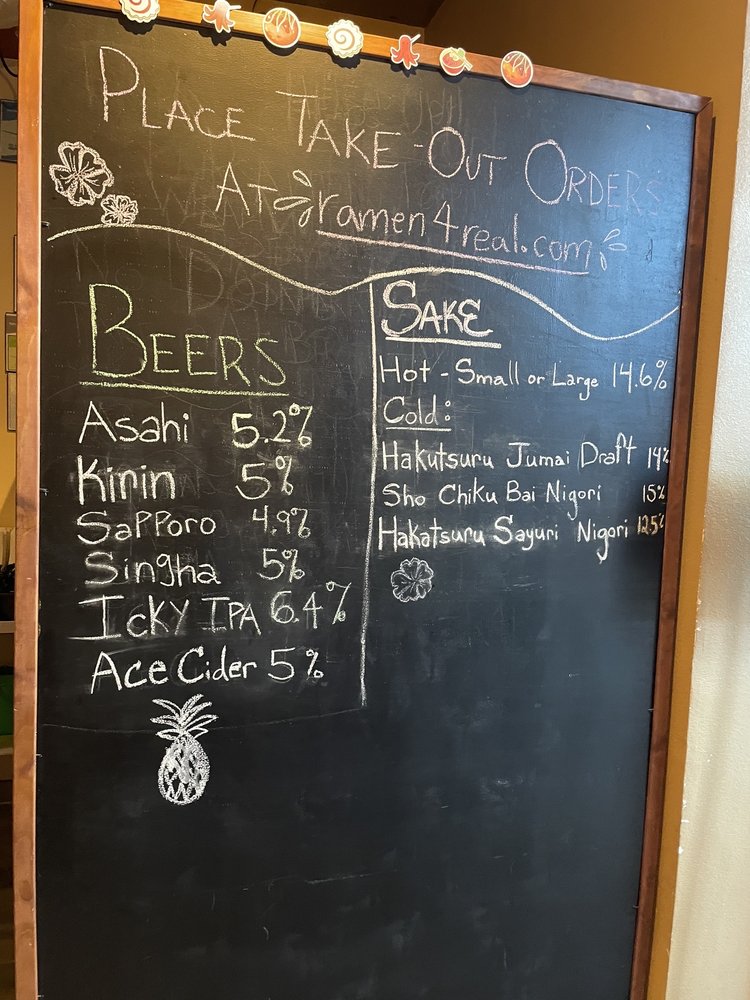 PLACE TAKE-OUT ORDERS
AT ramen4real.com
BEERS
Asahi 5.2%
Kirin 5%
Sapporo 4.9%
Singha 5%
ICKY IPA 6.4%
Ace Cider 5%
SAKE
Hot - Small or Large 14.6%
Cold:
Hakutsuru Jumai Draft 14%
Sho Chiku Bai Nigori 15%
Hakatsuru Sayuri Nigori 12.5%